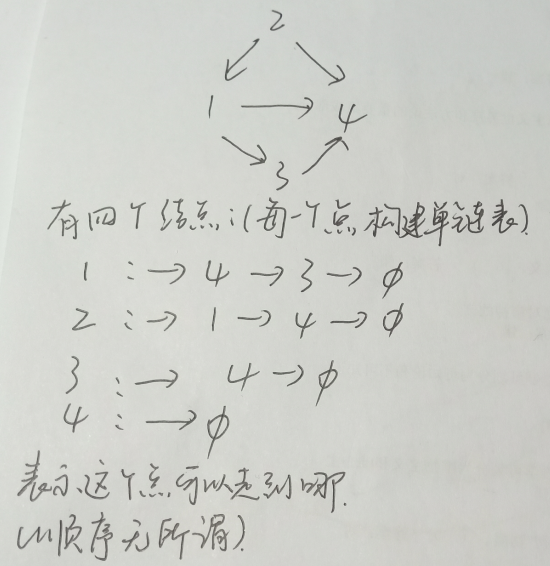 2
1 → 4
3
有四个结点:(每一个点构建单链表)
1 :→ 4 → 3 → ∅
2 :→ 1 → 4 → ∅
3 :→ 4 → ∅
4 :→ ∅
表示这个点可以走到哪.
(顺序无所谓)